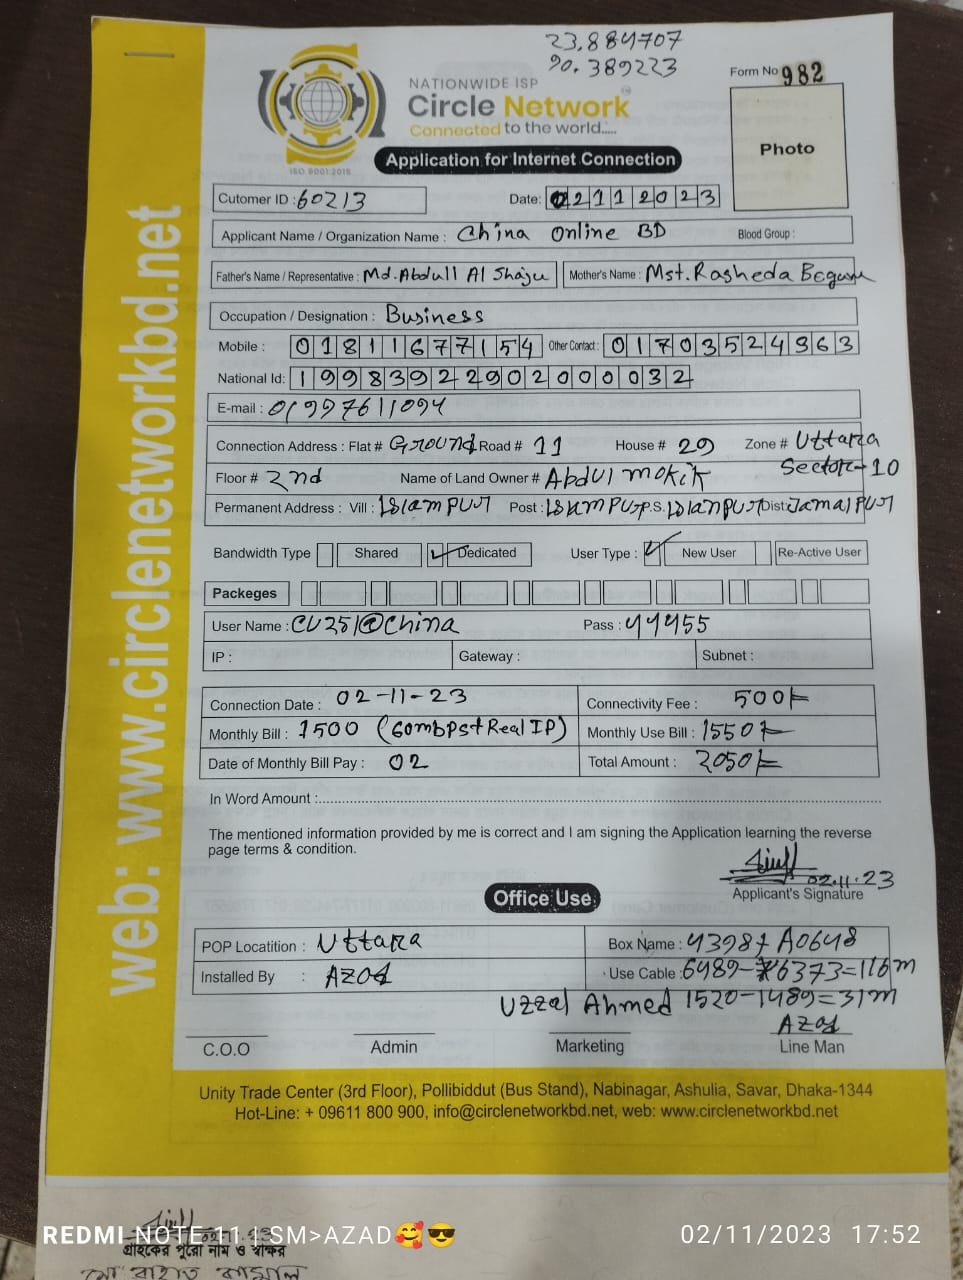 23.884707
90.389223
Form No 982
NATIONWIDE ISP
Circle Network
Connected to the world.....
ISO 9001:2015
Application for Internet Connection
Photo
Cutomer ID : 60213
Date: 02112023
Applicant Name / Organization Name : China Online BD
Blood Group :
Father's Name / Representative : Md. Abdull Al Shaju
Mother's Name : Mst. Rasheda Begum
Occupation / Designation : Business
Mobile : 01811677154
Other Contact : 01703524363
National Id: 19983922902000032
E-mail : 01997611094
Connection Address : Flat # Ground Road # 11 House # 29 Zone # Uttara
Sector-10
Floor # 2nd Name of Land Owner # Abdul mokit
Permanent Address : Vill : Islampur Post : Islampur P.S. Islampur Dist: Jamalpur
Bandwidth Type Shared Dedicated User Type : New User Re-Active User
Packeges
User Name : CU251@China Pass : 44455
IP : Gateway : Subnet :
Connection Date : 02-11-23 Connectivity Fee : 500/=
Monthly Bill : 1500 (60mbps+Real IP) Monthly Use Bill : 1550/=
Date of Monthly Bill Pay : 02 Total Amount : 2050/=
In Word Amount :
The mentioned information provided by me is correct and I am signing the Application learning the reverse
page terms & condition.
02.11.23
Applicant's Signature
Office Use
POP Locatition : Uttara Box Name : 43987 A0648
Installed By : AZad Use Cable : 6489-6373=116m
Uzzal Ahmed 1520-1489=31m
AZad
C.O.O Admin Marketing Line Man
Unity Trade Center (3rd Floor), Pollibiddut (Bus Stand), Nabinagar, Ashulia, Savar, Dhaka-1344
Hot-Line: + 09611 800 900, info@circlenetworkbd.net, web: www.circlenetworkbd.net
web: www.circlenetworkbd.net
REDMI NOTE 11 | SM>AZAD🥰😎
02/11/2023 17:52
গ্রাহকের পুরো নাম ও স্বাক্ষর